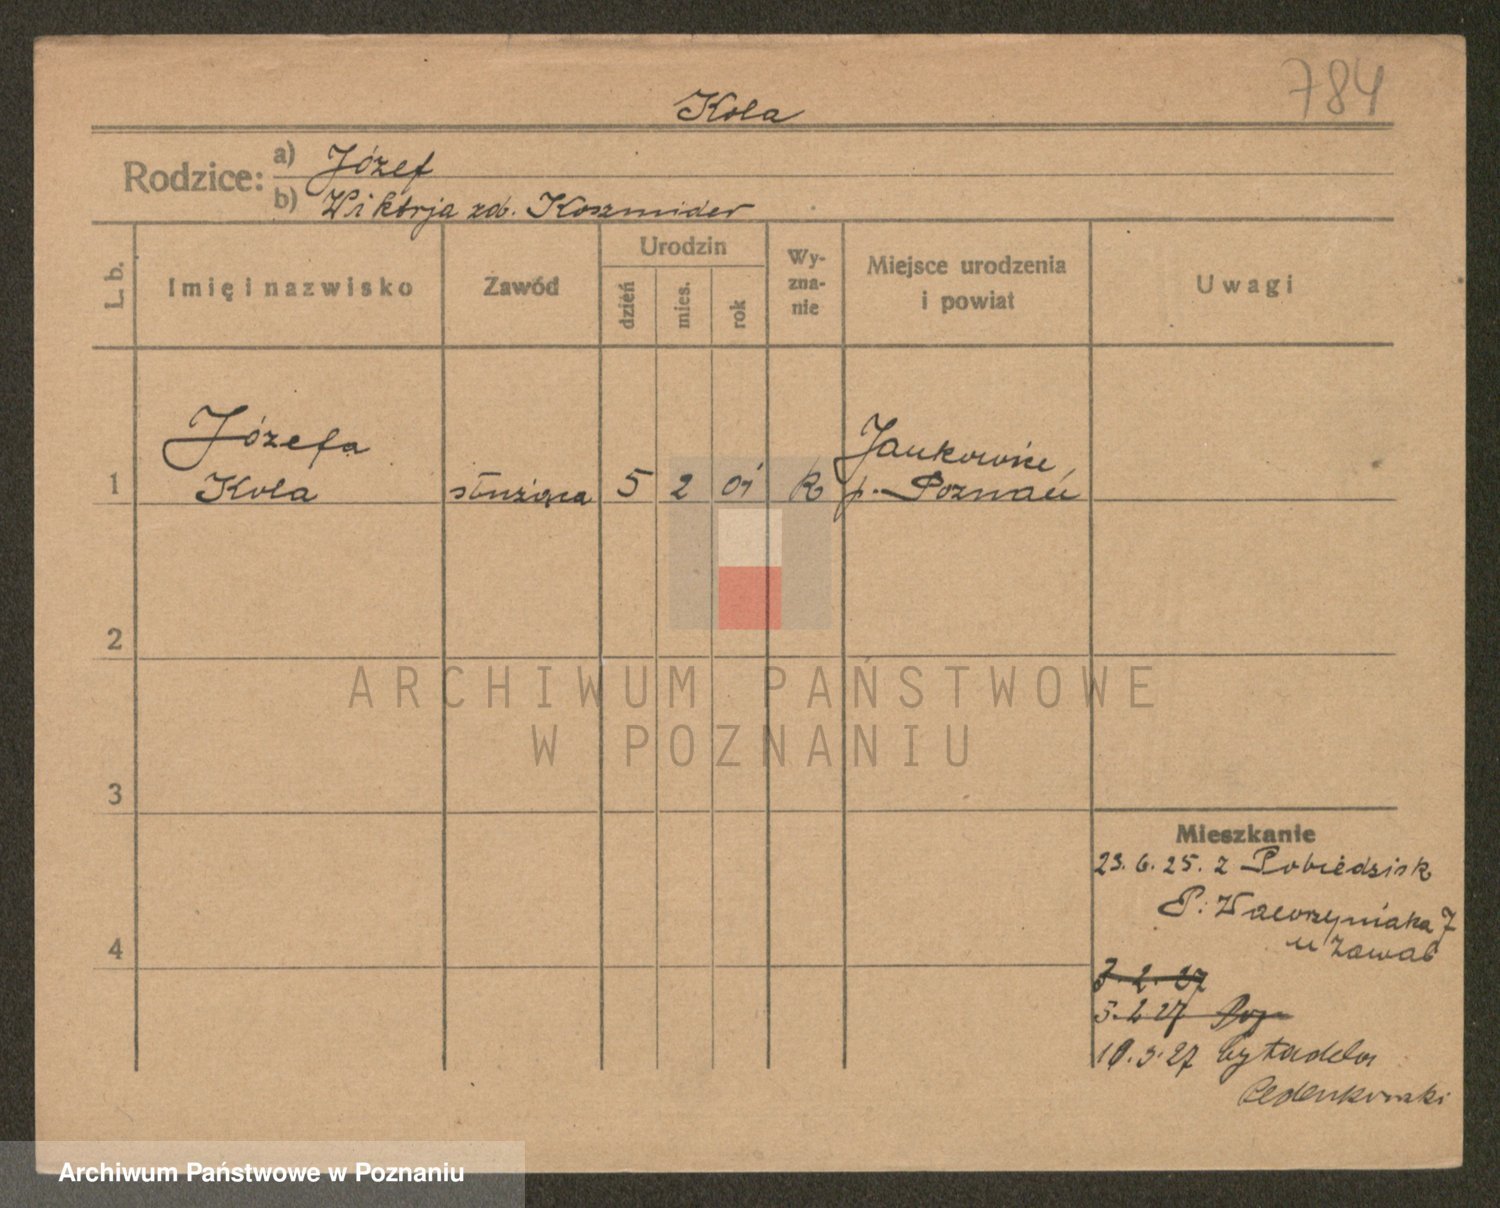 784
Kola
Rodzice:
a) Józef
b) Wiktorja zd. Koszmider
L. b.
Imię i nazwisko
Zawód
Urodzin
dzień
mies.
rok
Wy-
zna-
nie
Miejsce urodzenia
i powiat
Uwagi
Józefa
Jankowice,
1 Kola służąca 5 2 01 k p. Poznań
2
ARCHIWUM PAŃSTWOWE
W POZNANIU
3
Mieszkanie
23. 6. 25. z Pobiedzisk
P. Wawrzyniaka 7
u Zawad
4
3. 2. 27
5. 2 27 Poz
10. 3. 27 Cytadela
Archiwum Państwowe w Poznaniu